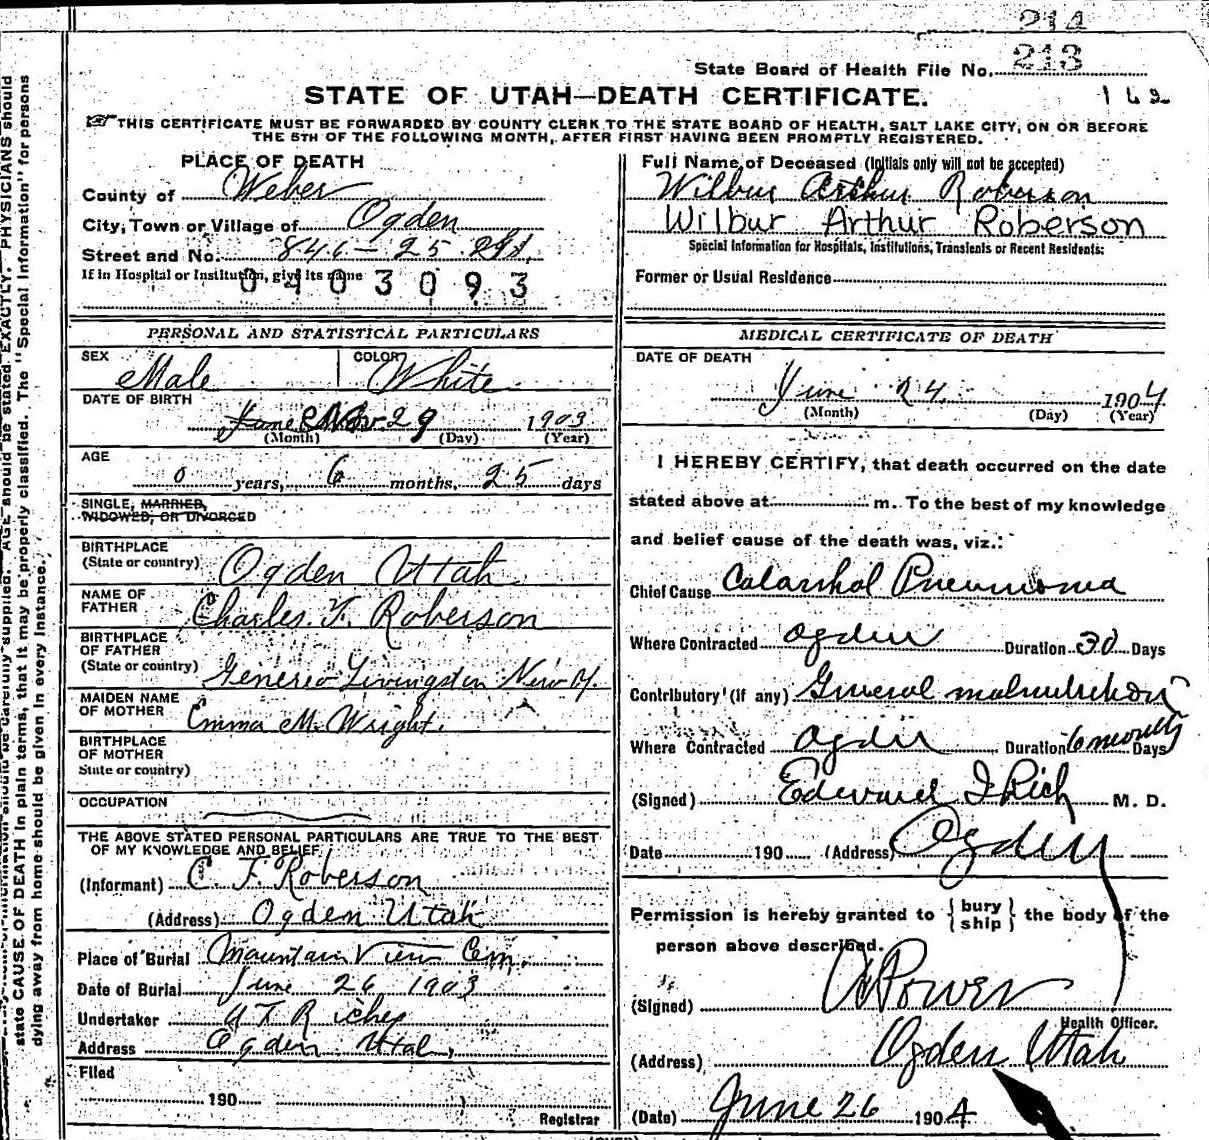 214
State Board of Health File No. 213
STATE OF UTAH—DEATH CERTIFICATE.
162
THIS CERTIFICATE MUST BE FORWARDED BY COUNTY CLERK TO THE STATE BOARD OF HEALTH, SALT LAKE CITY, ON OR BEFORE
THE 5TH OF THE FOLLOWING MONTH, AFTER FIRST HAVING BEEN PROMPTLY REGISTERED.
PLACE OF DEATH
County of Weber
City, Town or Village of Ogden
Street and No. 846 – 25 St.
If in Hospital or Institution, give its name
0403093
Full Name of Deceased (Initials only will not be accepted)
Wilbur Arthur Roberson
Wilbur Arthur Roberson
Special Information for Hospitals, Institutions, Transients or Recent Residents:
Former or Usual Residence
PERSONAL AND STATISTICAL PARTICULARS
SEX Male COLOR White
DATE OF BIRTH
June Nov 29 1903
(Month) (Day) (Year)
AGE
0 years, 6 months, 25 days
SINGLE, MARRIED,
WIDOWED, OR DIVORCED
BIRTHPLACE
(State or country) Ogden Utah
NAME OF
FATHER Charles F. Roberson
BIRTHPLACE
OF FATHER
(State or country) Genereo Livingston New Y.
MAIDEN NAME
OF MOTHER Emma M. Wright.
BIRTHPLACE
OF MOTHER
State or country)
OCCUPATION
THE ABOVE STATED PERSONAL PARTICULARS ARE TRUE TO THE BEST
OF MY KNOWLEDGE AND BELIEF
(Informant) C. F. Roberson
(Address) Ogden Utah
Place of Burial Mountain View Cem.
Date of Burial June 26 1903
Undertaker
Address Ogden Utah,
Filed
190
Registrar
MEDICAL CERTIFICATE OF DEATH
DATE OF DEATH
June 24 1904
(Month) (Day) (Year)
I HEREBY CERTIFY, that death occurred on the date
stated above at m. To the best of my knowledge
and belief cause of the death was, viz.:
Chief Cause Catarrhal Pneumonia
Where Contracted Ogden Duration 30 Days
Contributory (if any) General malnutrition
Where Contracted Ogden Duration 6 months Days
(Signed) Edward I Rich M. D.
Date 190 (Address) Ogden
Permission is hereby granted to { bury ship } the body of the
person above described.
(Signed) Power
Health Officer.
(Address) Ogden Utah
(Date) June 26 1904
PHYSICIANS should
state CAUSE OF DEATH in plain terms, that it may be properly classified. The "Special Information" for persons
dying away from home should be given in every instance.